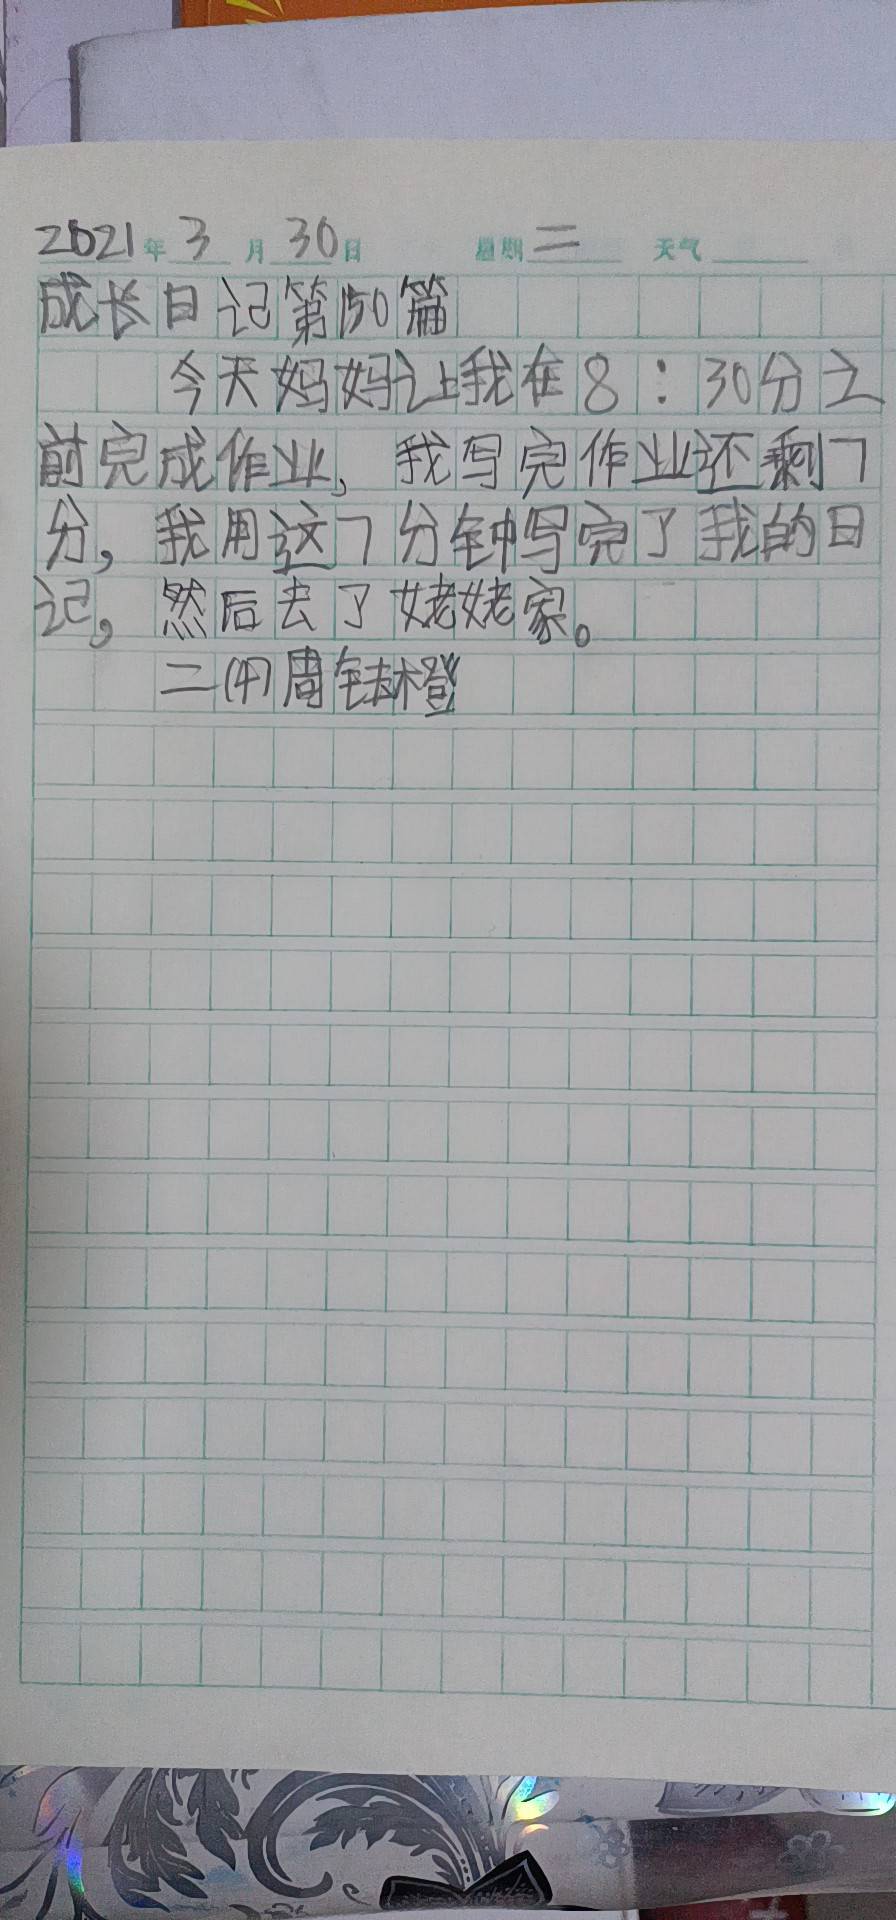 2021年3月30日 星期二 天气
成长日记第150篇
今天妈妈让我在8:30分之
前完成作业,我写完作业还剩7
分,我用这7分钟写完了我的日
记,然后去了姥姥家。
二(4)周铱橙